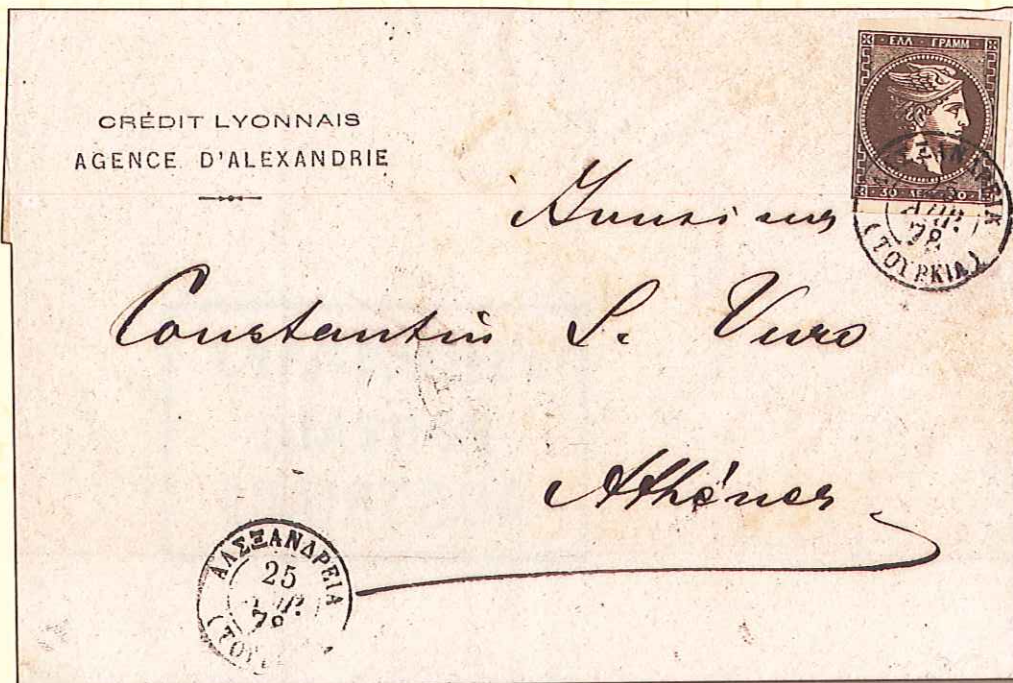 CRÉDIT LYONNAIS
AGENCE D'ALEXANDRIE
ΕΛΛ ΓΡΑΜΜ
30 ΛΕΠ 30
ΑΛΕΞΑΝΔΡΕΙΑ
ΑΠΡ.
78
(ΤΟΥΡΚΙΑ)
Monsieur
Constantin S. Vuro
Athénes
ΑΛΕΞΑΝΔΡΕΙΑ
25
ΑΠΡ.
78
(ΤΟΥ